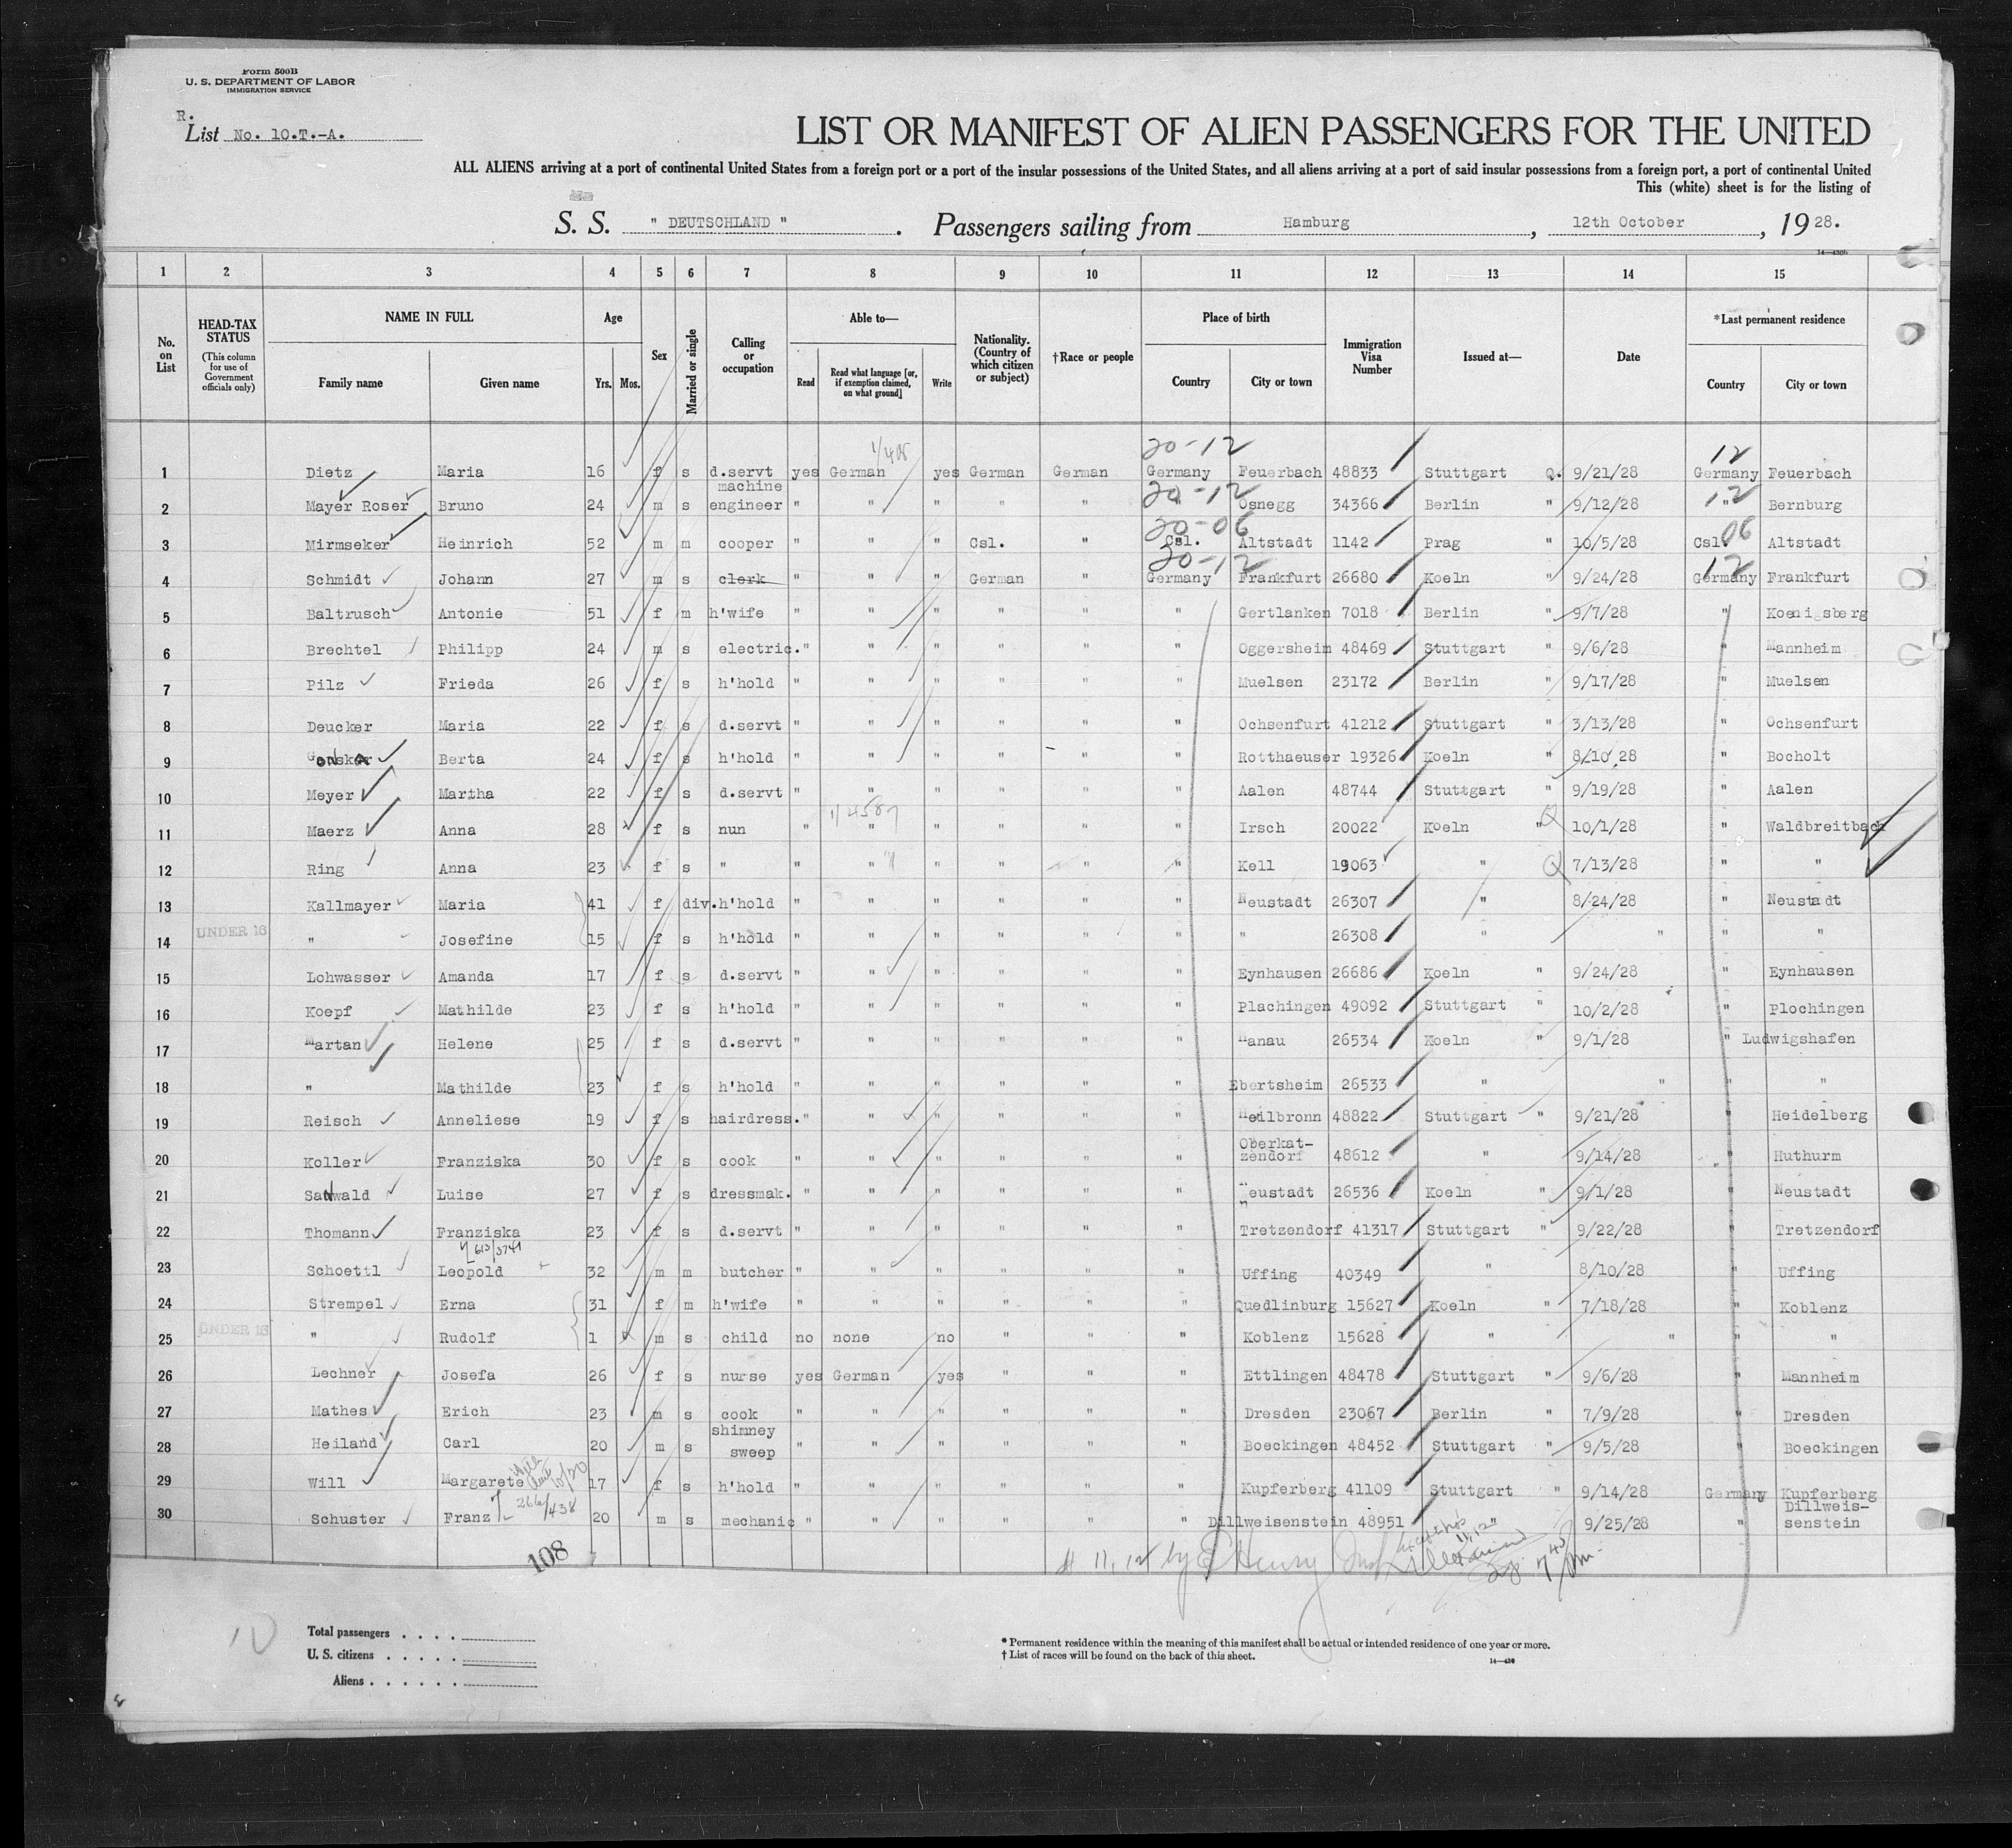 Form 500B
U. S. DEPARTMENT OF LABOR
IMMIGRATION SERVICE
R.
List No. 10.T.-A.
LIST OR MANIFEST OF ALIEN PASSENGERS FOR THE UNITED
ALL ALIENS arriving at a port of continental United States from a foreign port or a port of the insular possessions of the United States, and all aliens arriving at a port of said insular possessions from a foreign port, a port of continental United
This (white) sheet is for the listing of
S. S. " DEUTSCHLAND " . Passengers sailing from Hamburg , 12th October , 19 28.
14—430b
1 2 3 4 5 6 7 8 9 10 11 12 13 14 15
No. on List
HEAD-TAX STATUS (This column for use of Government officials only)
NAME IN FULL Family name Given name
Age Yrs. Mos.
Sex
Married or single
Calling or occupation
Able to— Read Read what language [or, if exemption claimed, on what ground] Write
Nationality. (Country of which citizen or subject)
†Race or people
Place of birth Country City or town
Immigration Visa Number
Issued at—
Date
*Last permanent residence Country City or town
20-12 12
1 Dietz Maria 16 f s d.servt yes German yes German German Germany Feuerbach 48833 Stuttgart Q. 9/21/28 Germany Feuerbach
20-12 12
2 Mayer Roser Bruno 24 m s machine engineer " " " " " " Osnegg 34366 Berlin " 9/12/28 " Bernburg
20-06 06
3 Mirmseker Heinrich 52 m m cooper " " " Csl. " Csl. Altstadt 1142 Prag " 10/5/28 Csl. Altstadt
20-12 12
4 Schmidt Johann 27 m s clerk " " " German " Germany Frankfurt 26680 Koeln " 9/24/28 Germany Frankfurt
5 Baltrusch Antonie 51 f m h'wife " " " " " " Gertlanken 7018 Berlin " 9/7/28 " Koenigsberg
6 Brechtel Philipp 24 m s electric. " " " " " " Oggersheim 48469 Stuttgart " 9/6/28 " Mannheim
7 Pilz Frieda 26 f s h'hold " " " " " " Muelsen 23172 Berlin " 9/17/28 " Muelsen
8 Deucker Maria 22 f s d.servt " " " " " " Ochsenfurt 41212 Stuttgart " 3/13/28 " Ochsenfurt
9 Berta 24 f s h'hold " " " " " " Rotthaeuser 19326 Koeln " 8/10/28 " Bocholt
10 Meyer Martha 22 f s d.servt " " " " " " Aalen 48744 Stuttgart " 9/19/28 " Aalen
11 Maerz Anna 28 f s nun " " " " " " Irsch 20022 Koeln " Q 10/1/28 " Waldbreitbach
12 Ring Anna 23 f s " " " " " " " Kell 19063 " Q 7/13/28 " "
13 Kallmayer Maria 41 f div. h'hold " " " " " " Neustadt 26307 " 8/24/28 " Neustadt
14 UNDER 16 " Josefine 15 f s h'hold " " " " " " " 26308 " " " "
15 Lohwasser Amanda 17 f s d.servt " " " " " " Eynhausen 26686 Koeln " 9/24/28 " Eynhausen
16 Koepf Mathilde 23 f s h'hold " " " " " " Plachingen 49092 Stuttgart " 10/2/28 " Plochingen
17 Martan Helene 25 f s d.servt " " " " " " Hanau 26534 Koeln " 9/1/28 " Ludwigshafen
18 " Mathilde 23 f s h'hold " " " " " " Ebertsheim 26533 " " " "
19 Reisch Anneliese 19 f s hairdress. " " " " " " Heilbronn 48822 Stuttgart " 9/21/28 " Heidelberg
20 Koller Franziska 30 f s cook " " " " " " Oberkat-zendorf 48612 " 9/14/28 " Huthurm
21 Sanwald Luise 27 f s dressmak. " " " " " " Neustadt 26536 Koeln " 9/1/28 " Neustadt
22 Thomann Franziska 23 f s d.servt " " " " " " Tretzendorf 41317 Stuttgart " 9/22/28 " Tretzendorf
23 Schoettl Leopold 32 m m butcher " " " " " " Uffing 40349 " 8/10/28 " Uffing
24 Strempel Erna 31 f m h'wife " " " " " " Quedlinburg 15627 Koeln " 7/18/28 " Koblenz
25 UNDER 16 " Rudolf 1 m s child no none no " " " Koblenz 15628 " " " "
26 Lechner Josefa 26 f s nurse yes German yes " " " Ettlingen 48478 Stuttgart " 9/6/28 " Mannheim
27 Mathes Erich 23 m s cook " " " " " " Dresden 23067 Berlin " 7/9/28 " Dresden
28 Heiland Carl 20 m s shimney sweep " " " " " " Boeckingen 48452 Stuttgart " 9/5/28 " Boeckingen
29 Will Margarete 17 f s h'hold " " " " " " Kupferberg 41109 Stuttgart " 9/14/28 Germany Kupferberg
30 Schuster Franz 266/438 20 m s mechanic " " " " " " Dillweisenstein 48951 9/25/28 " Dillweis-senstein
108
Total passengers
U. S. citizens
Aliens
* Permanent residence within the meaning of this manifest shall be actual or intended residence of one year or more.
† List of races will be found on the back of this sheet.
14—430